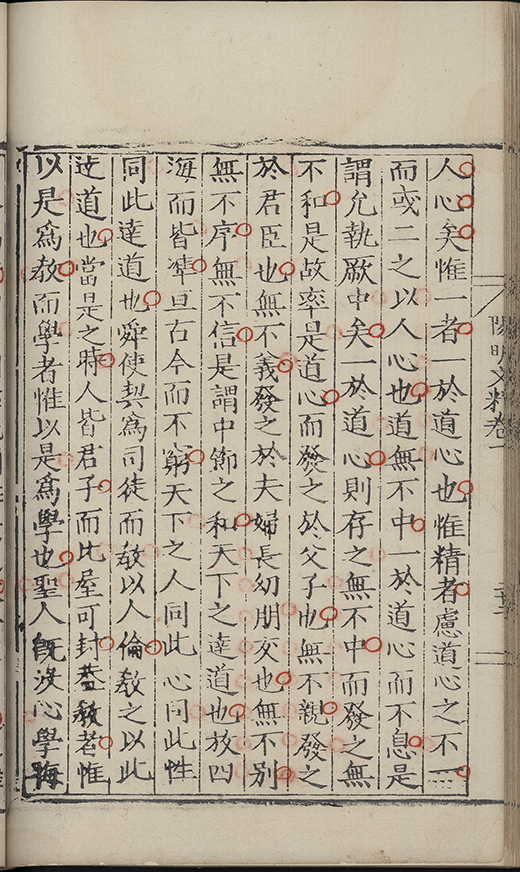 陽明文粹卷一
人心矣惟一者一於道心也惟精者慮道心之不一
而或二之以人心也道無不中一於道心而不息是
謂允執厥中矣一於道心則存之無不中而發之無
不和是故率是道心而發之於父子也無不親發之
於君臣也無不義發之於夫婦長幼朋友也無不別
無不序無不信是謂中節之和天下之達道也放四
海而皆準亘古今而不窮天下之人同此心同此性
同此達道也舜使契為司徒而教以人倫教之以此
達道也當是之時人皆君子而比屋可封蓋教者惟
以是為教而學者惟以是為學也聖人既沒心學晦